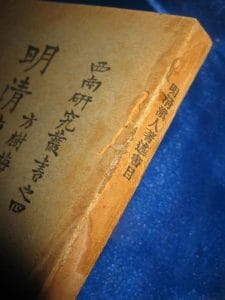 明清滇人著述書目
西南研究叢書之四
明清
方樹梅